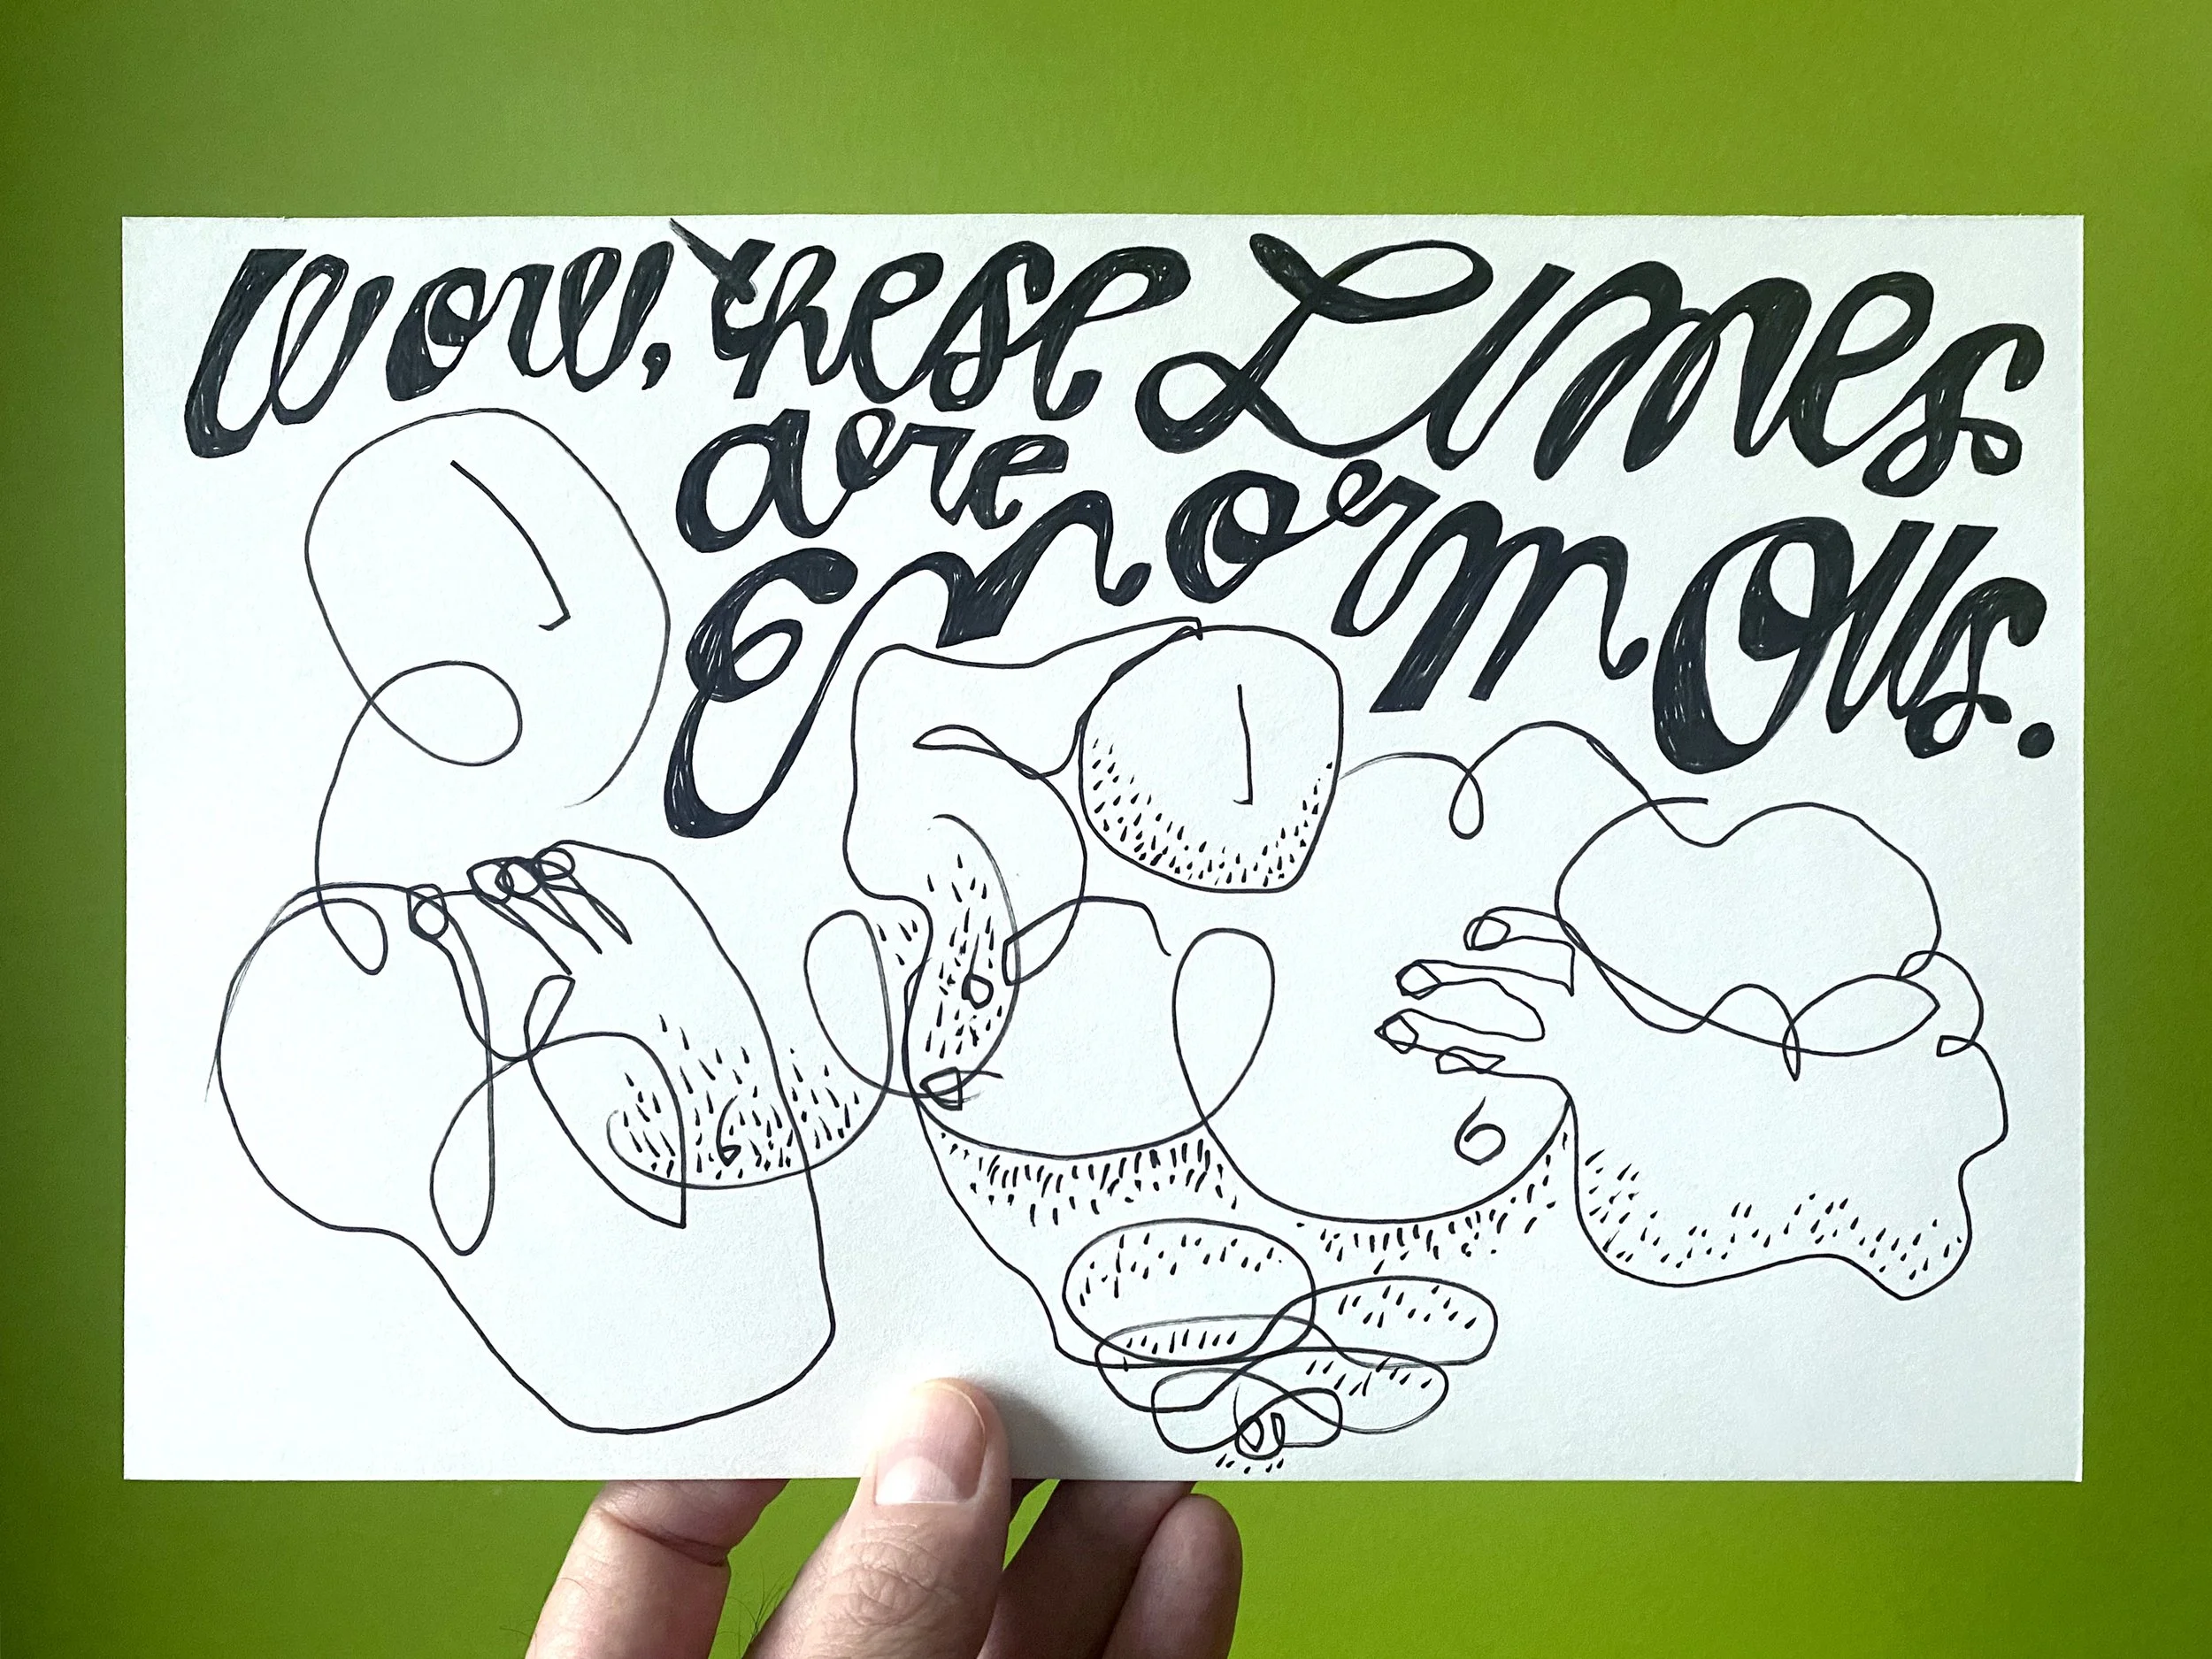 Wow, these Limes
are
Enormous.